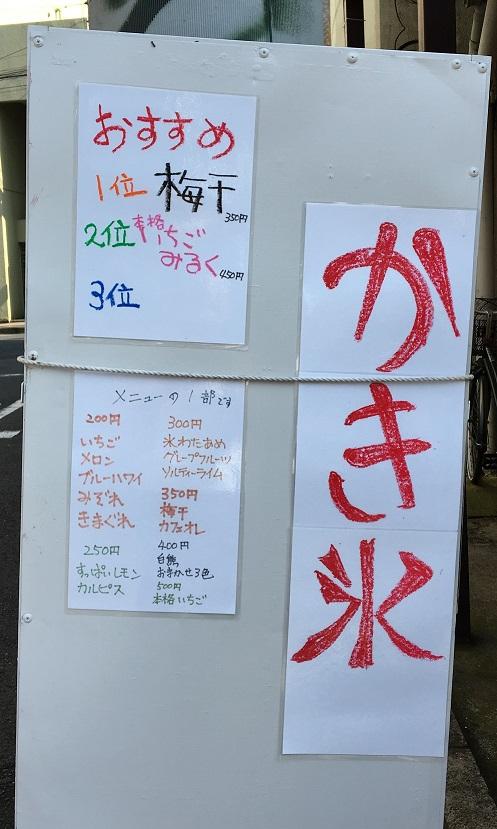 おすすめ
1位 梅干
350円
2位 本格いちご
みるく 450円
3位
かき氷
メニューの1部です
200円
いちご
メロン
ブルーハワイ
みぞれ
きまぐれ
250円
すっぱいレモン
カルピス
300円
氷わたあめ
グレープフルーツ
ソルティーライム
350円
梅干
カフェオレ
400円
白熊
おまかせ3色
500円
本格いちご